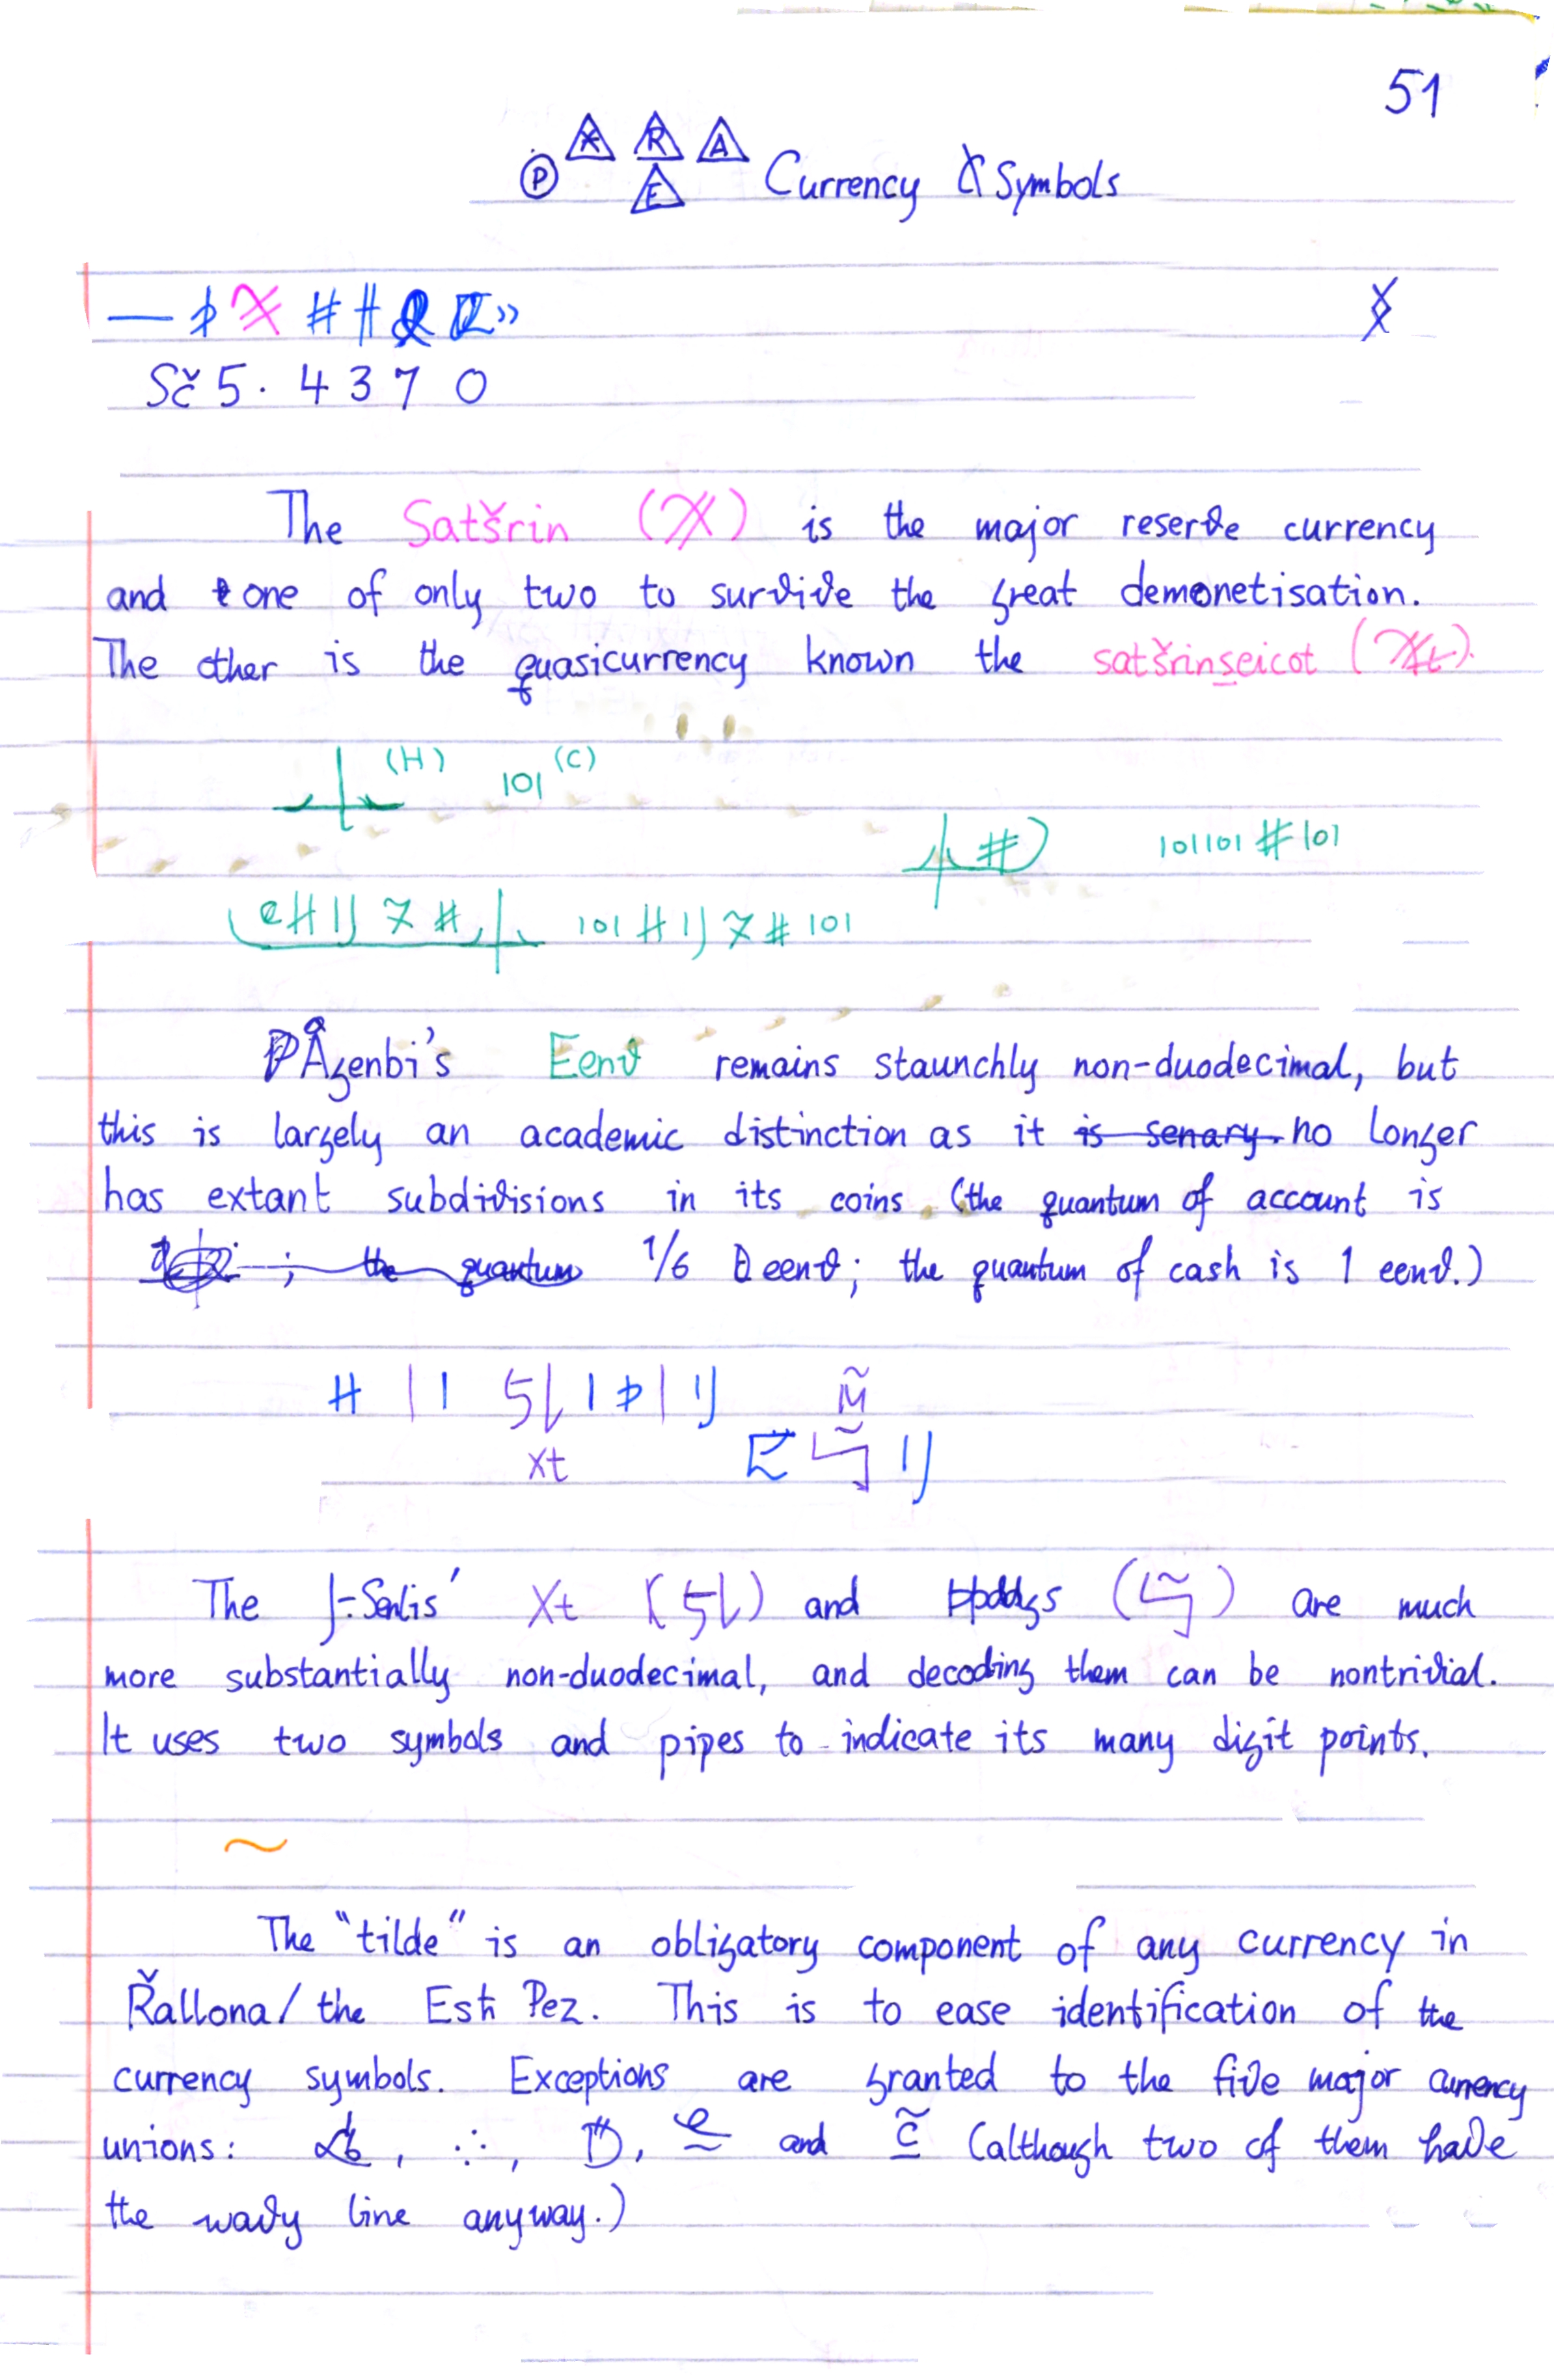 51
Ⓟ X R A E Currency & Symbols
Sč 5 . 4 3 7 0
The Satšrin ( ) is the major reserve currency
and one of only two to survive the great demonetisation.
The other is the quasicurrency known the satšrinseicot ( ).
(H) 101 (C)
101101 # 101
101 # 101
Ågenbi's Eenv remains staunchly non-duodecimal, but
this is largely an academic distinction as it is senary. no longer
has extant subdivisions in its coins (the quantum of account is
; the quantum 1/6 eenv; the quantum of cash is 1 eenv.)
M̃
Xt
The ʃ-Senlis' Xt ( ) and ( ) are much
more substantially non-duodecimal, and decoding them can be nontrivial.
It uses two symbols and pipes to indicate its many digit points.
~
The "tilde" is an obligatory component of any currency in
Řallona / the Esħ Pez. This is to ease identification of the
currency symbols. Exceptions are granted to the five major currency
unions: , ∴, , and C̃ (although two of them have
the wavy line anyway.)